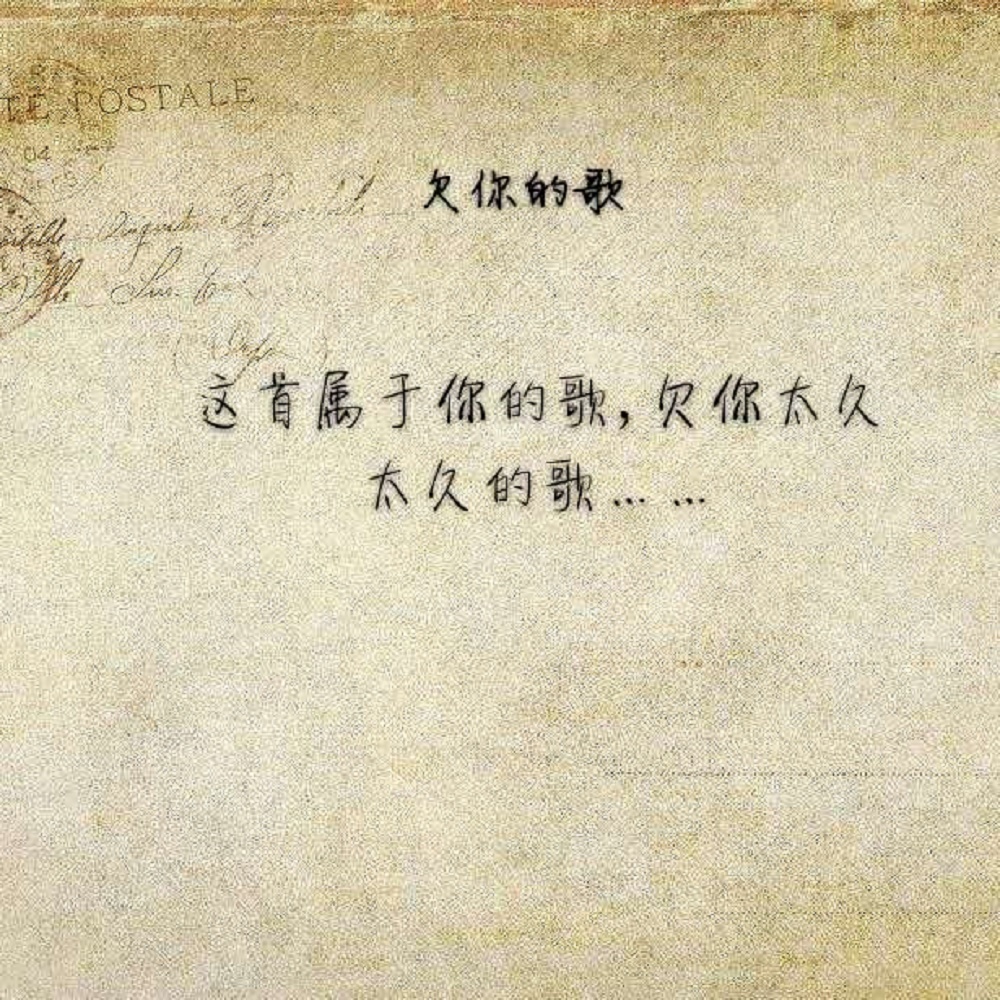 TE POSTALE
04
欠你的歌
这首属于你的歌,欠你太久
太久的歌... ...